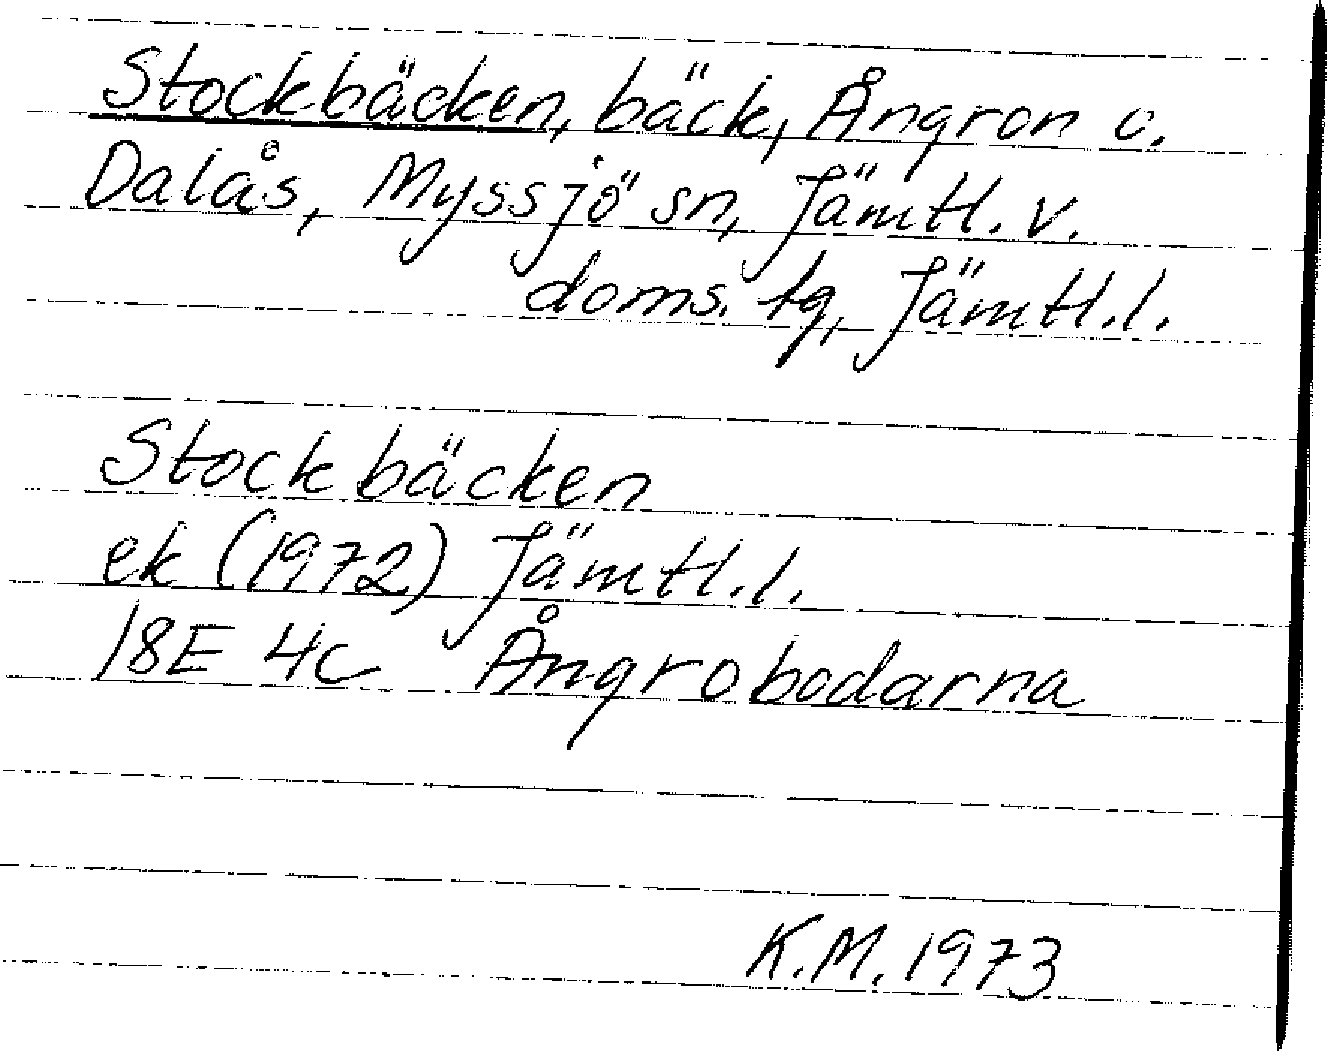 Stockbäcken, bäck, Ångron o.
Dalås, Myssjö sn, Jämtl. v.
doms. tg, Jämtl.l.
Stockbäcken
ek (1972) Jämtl.l.
18E 4c Ångrobodarna
K.M. 1973